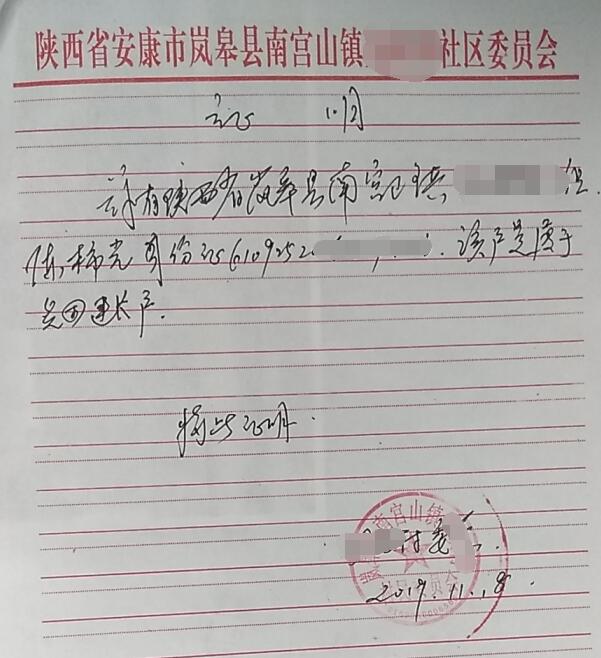 陕西省安康市岚皋县南宫山镇 社区委员会
证 明
兹有陕西省岚皋县南宫山镇 组
陈 身份证6109252 该户是属于
贫困 户.
特此证明.
南宫山镇
村委
2019.11.8